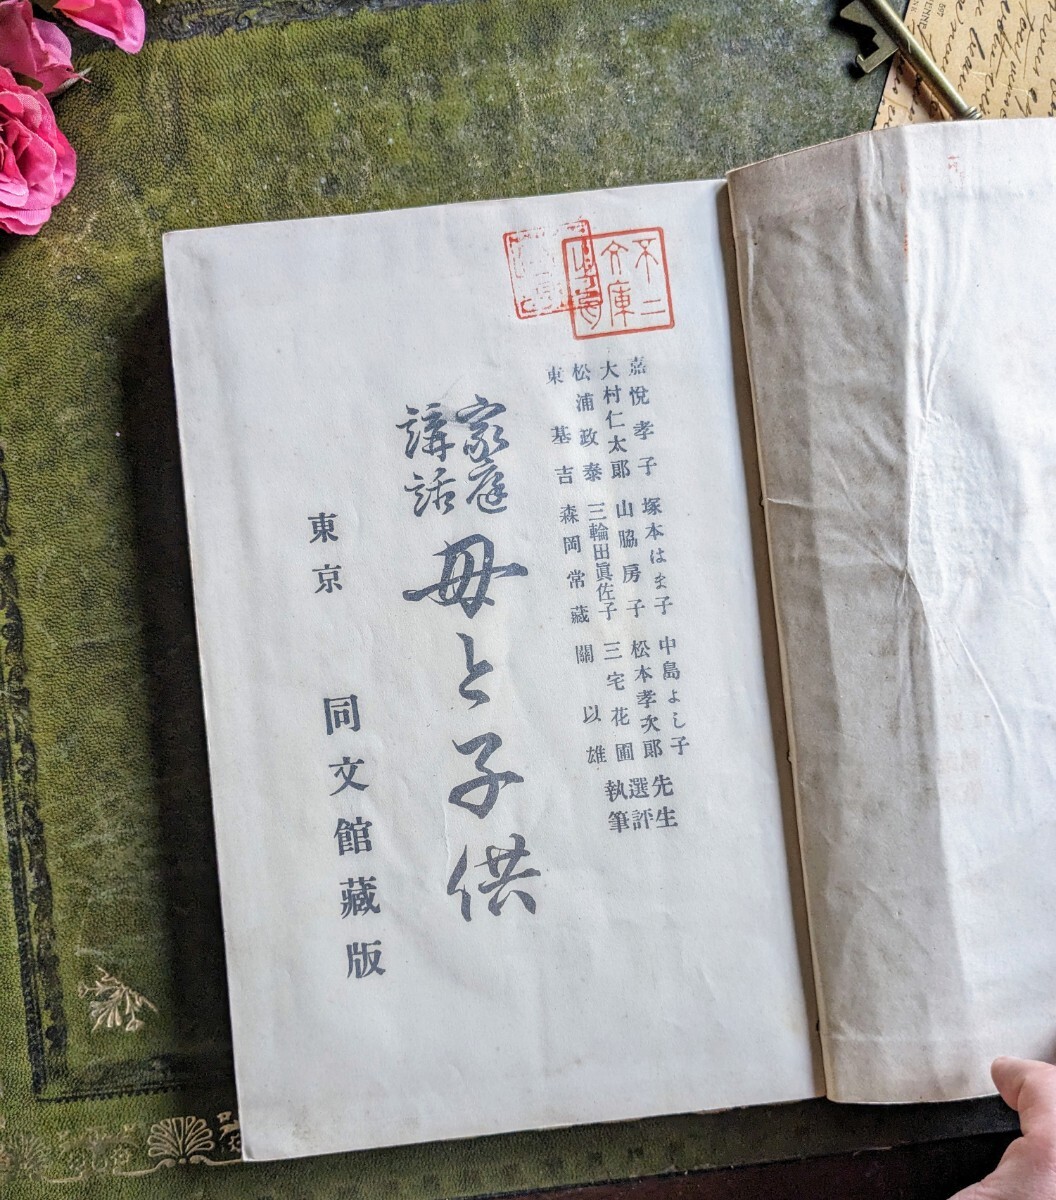 不二
文庫
嘉悅孝子 塚本はま子 中島よし子 先生
大村仁太郎 山脇房子 松本孝次郎 選評
松浦政泰 三輪田眞佐子 三宅花圃 執筆
東基吉 森岡常藏 關以雄
家庭
講話
母と子供
東京 同文館藏版